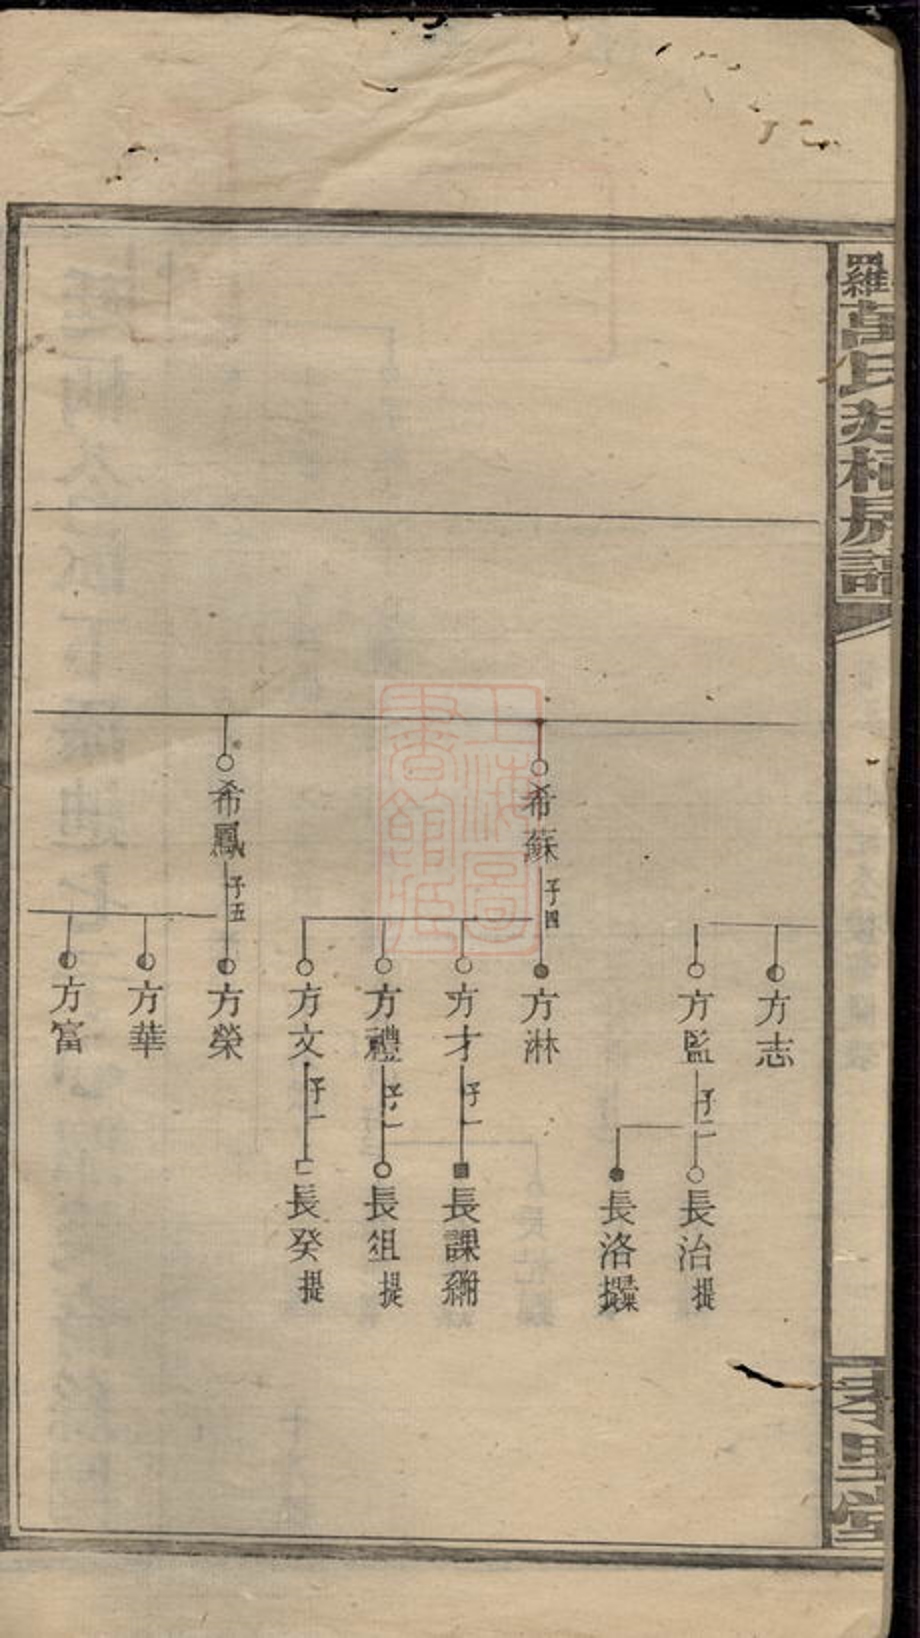 羅
氏
房譜
堂
方志
方監
子二
長治 提
長洛
希蘇
子四
方淋
方才
子一
長課
方禮
子一
長俎 提
方文
子一
長癸 提
希鳳
子五
方榮
方華
方富
上海圖
書館藏